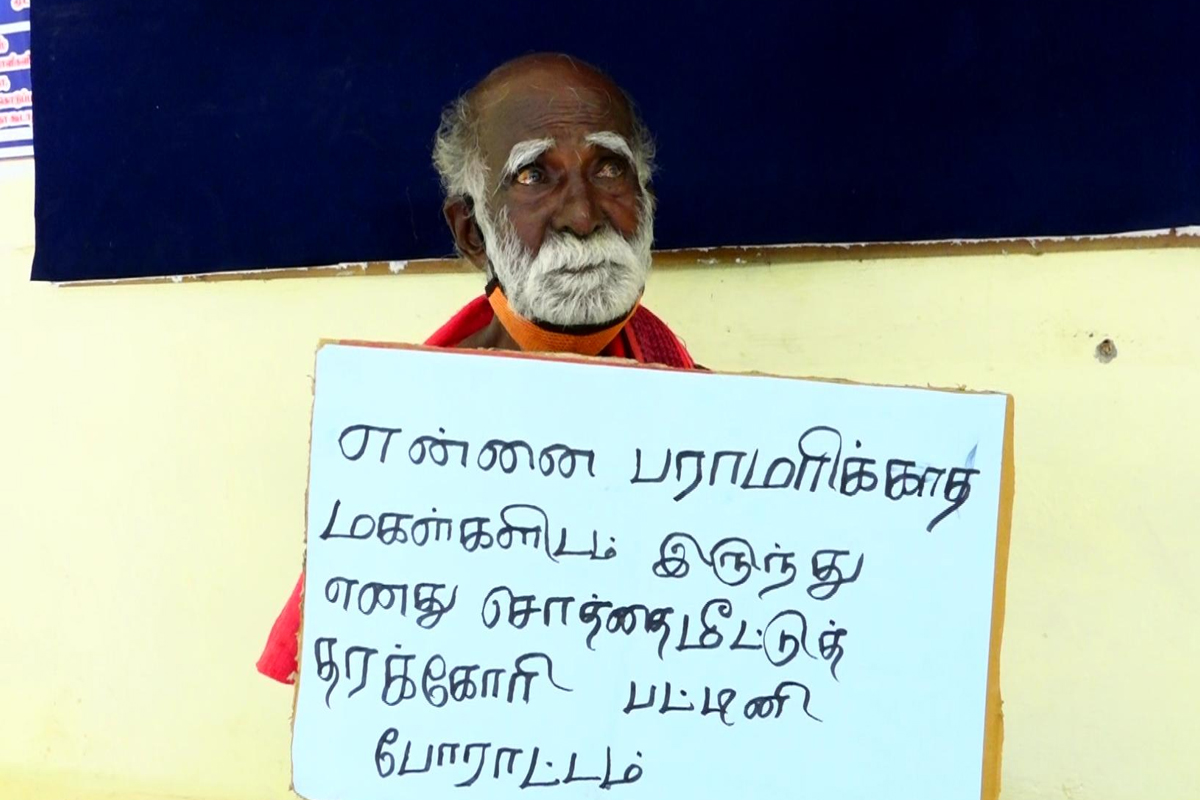 என்னை பராமரிக்காத
மகள்களிடம் இருந்து
எனது சொத்தை மீட்டுத்
தரக்கோரி பட்டினி
போராட்டம்